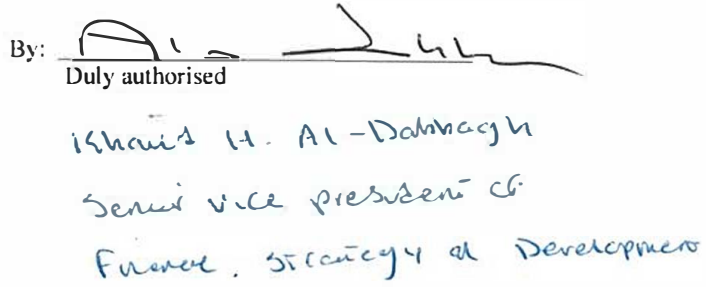 By:
Duly authorised
Khalid H. Al-Dabbagh
Senior vice president of
Finance, Strategy & Development